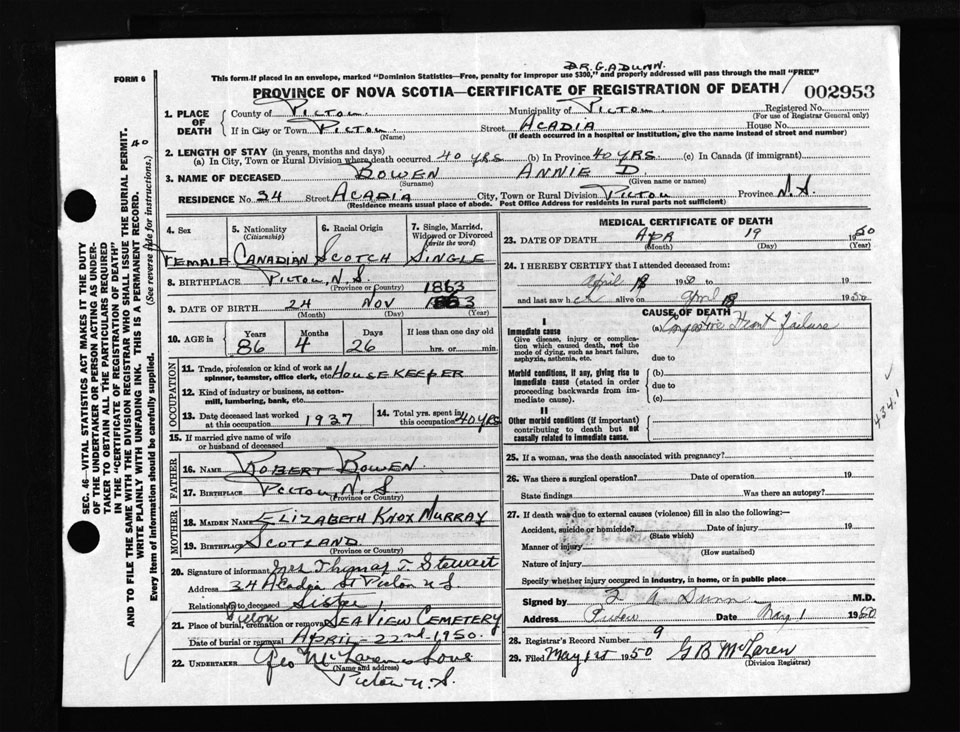 DR. G. A DUNN.
FORM 6
This form if placed in an envelope, marked "Dominion Statistics—Free, penalty for improper use $300," and properly addressed will pass through the mail "FREE"
PROVINCE OF NOVA SCOTIA—CERTIFICATE OF REGISTRATION OF DEATH
002953
SEC. 46—VITAL STATISTICS ACT MAKES IT THE DUTY
OF THE UNDERTAKER OR PERSON ACTING AS UNDER-
TAKER TO OBTAIN ALL THE PARTICULARS REQUIRED
IN THE "CERTIFICATE OF REGISTRATION OF DEATH"
AND TO FILE THE SAME WITH THE DIVISION REGISTRAR WHO SHALL ISSUE THE BURIAL PERMIT.
WRITE PLAINLY WITH UNFADING INK. THIS IS A PERMANENT RECORD.
Every item of information should be carefully supplied. (See reverse side for instructions.)
40
1. PLACE OF DEATH County of PICTOU Municipality of PICTOU Registered No.
(For use of Registrar General only)
If in City or Town PICTOU Street ACADIA House No.
(Name) (If death occurred in a hospital or institution, give the name instead of street and number)
2. LENGTH OF STAY (in years, months and days)
(a) In City, Town or Rural Division where death occurred 40 YRS (b) In Province 40 YRS (c) In Canada (if immigrant)
3. NAME OF DECEASED BOWEN ANNIE D.
(Surname) (Given name or names)
RESIDENCE No. 34 Street ACADIA City, Town or Rural Division PICTOU Province N.S.
(Residence means usual place of abode. Post Office Address for residents in rural parts not sufficient)
4. Sex 5. Nationality (Citizenship) 6. Racial Origin 7. Single, Married, Widowed or Divorced (write the word)
FEMALE CANADIAN SCOTCH SINGLE
8. BIRTHPLACE PICTOU, N.S.
(Province or Country) 1863
9. DATE OF BIRTH 24 NOV 1863
(Month) (Day) (Year)
10. AGE in Years Months Days If less than one day old
86 4 26 hrs. or min.
OCCUPATION
11. Trade, profession or kind of work as spinner, teamster, office clerk, etc HOUSEKEEPER
12. Kind of industry or business, as cotton-mill, lumbering, bank, etc.
13. Date deceased last worked at this occupation 1937 14. Total yrs. spent in this occupation 40 YRS
15. If married give name of wife or husband of deceased
FATHER
16. NAME ROBERT BOWEN
17. BIRTHPLACE PICTOU, N.S.
(Province or Country)
MOTHER
18. MAIDEN NAME ELIZABETH KNOX MURRAY
19. BIRTHPLACE SCOTLAND
(Province or Country)
20. Signature of informant Mrs Thomas T. Stewart
Address 34 Acadia St Pictou N S
Relationship to deceased Sister
21. Place of burial, cremation or removal Pictou SEAVIEW CEMETERY
Date of burial or removal APRIL - 22nd, 1950.
22. UNDERTAKER Geo McLaren & Sons
(Name and address)
Pictou N.S.
MEDICAL CERTIFICATE OF DEATH
23. DATE OF DEATH Apr 19 1950
(Month) (Day) (Year)
24. I HEREBY CERTIFY that I attended deceased from:
April 18 1950 to 19
and last saw h er alive on April 18 1950
CAUSE OF DEATH
I
Immediate cause
Give disease, injury or complication which caused death, not the mode of dying, such as heart failure, asphyxia, asthenia, etc.
(a) Congestive Heart failure
due to
Morbid conditions, if any, giving rise to immediate cause (stated in order proceeding backwards from immediate cause).
(b)
due to
(c)
II
Other morbid conditions (if important) contributing to death but not causally related to immediate cause.
434.1
25. If a woman, was the death associated with pregnancy?
26. Was there a surgical operation? Date of operation 19
State findings Was there an autopsy?
27. If death was due to external causes (violence) fill in also the following:—
Accident, suicide or homicide? Date of injury 19
(State which)
Manner of injury
(How sustained)
Nature of injury
Specify whether injury occurred in industry, in home, or in public place
Signed by G A Dunn M.D.
Address Pictou Date May 1 1950
28. Registrar's Record Number 9
29. Filed May 1st 1950 G B McLaren
(Division Registrar)